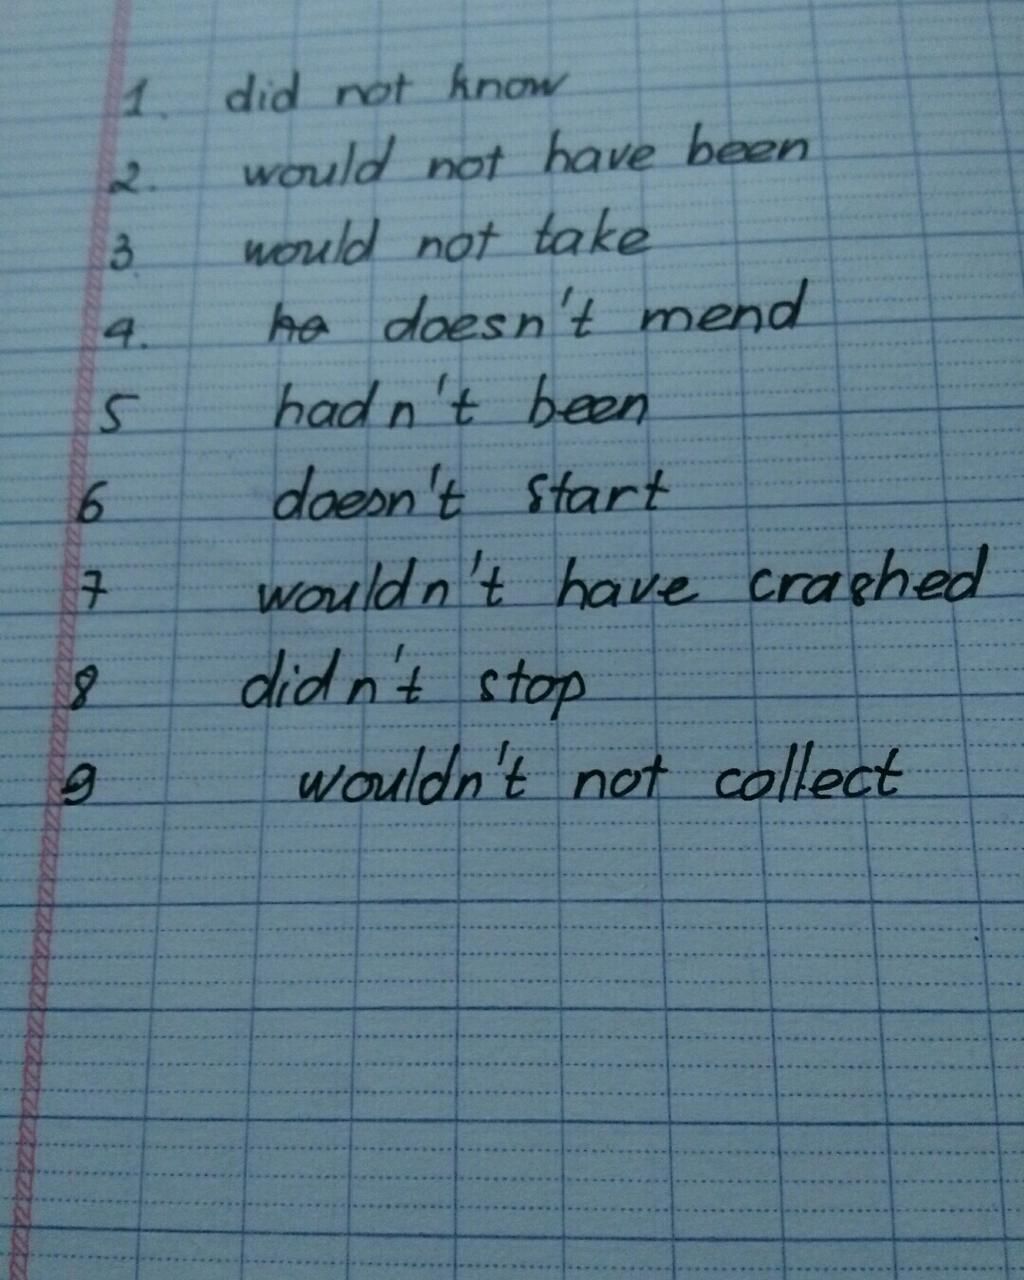 1. did not know
2. would not have been
3. would not take
4. doesn't mend
5 hadn't been
6 doesn't start
7 wouldn't have crashed
8 didn't stop
9 wouldn't not collect